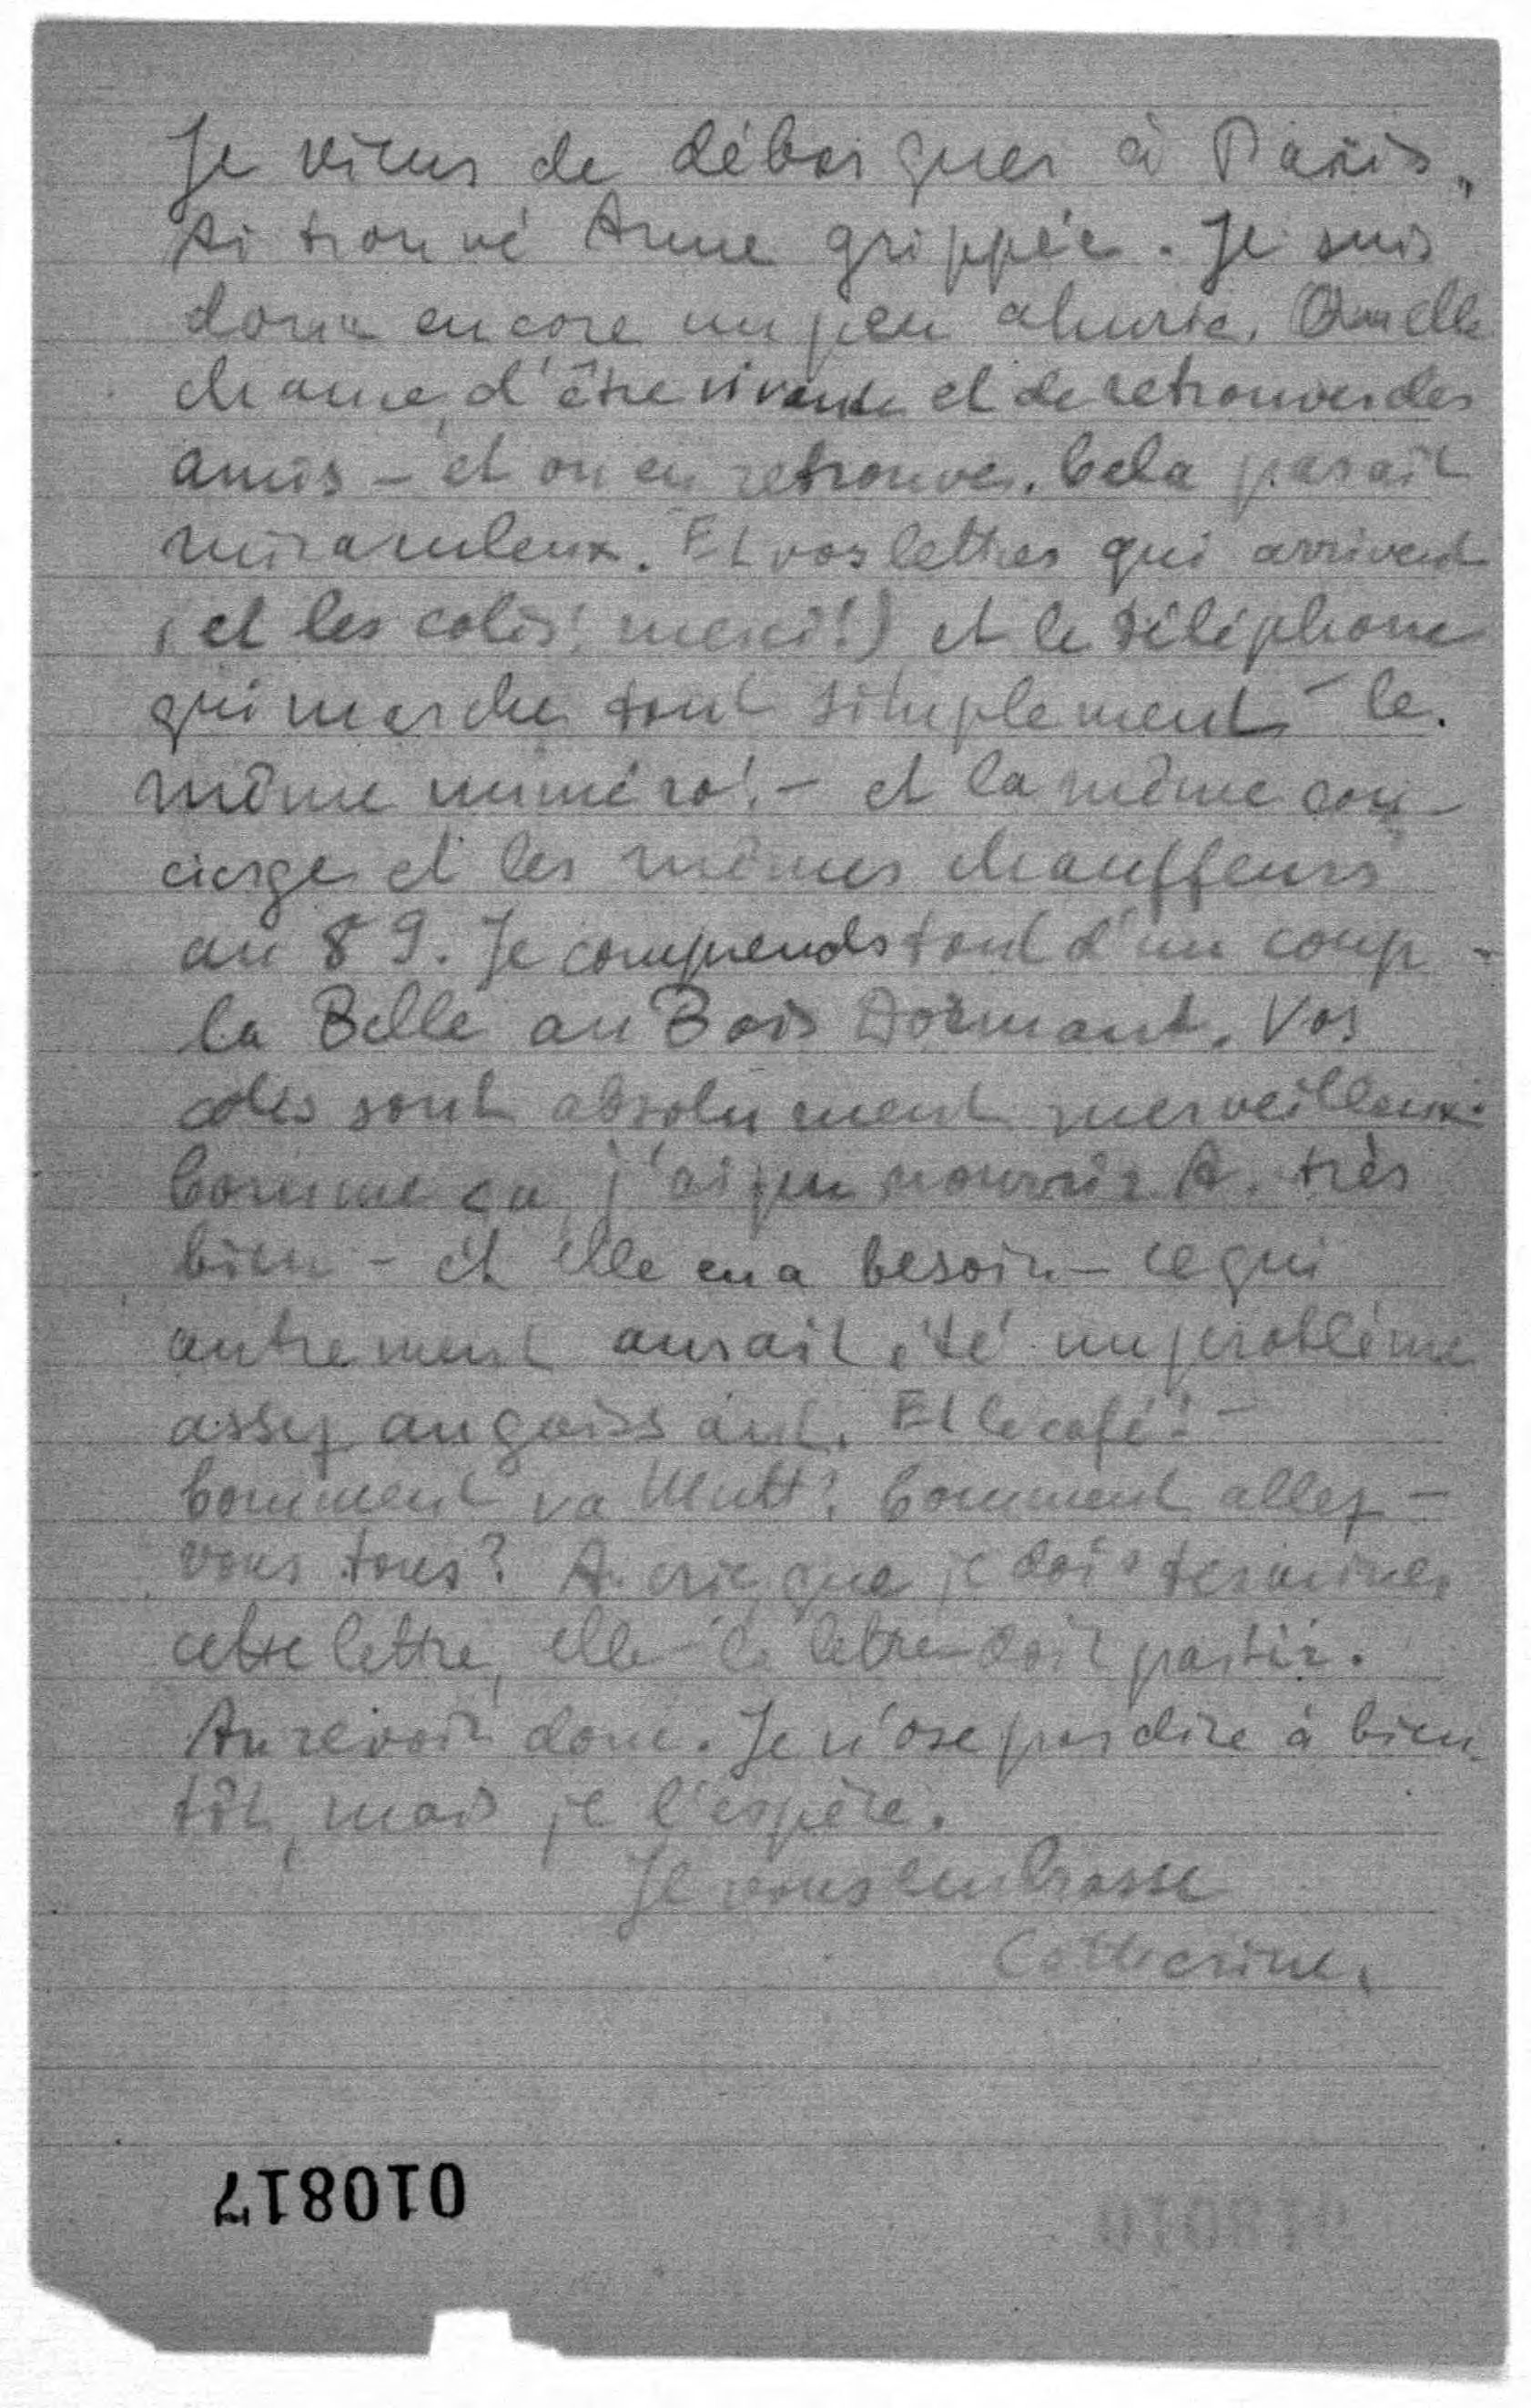 Je viens de débarquer à Paris,
Ai trouvé Anne grippée. Je suis
donc encore un peu ahurie. Quelle
chance d'être vivante et de retrouver des
amis – et on en retrouve. Cela paraît
miraculeux. Et vos lettres qui arrivent
(et les colis! merci!) et le téléphone
qui marche tout simplement – le
même numéro! – et la même con-
cierge et les mêmes chauffeurs
au 89. Je comprends tout d'un coup
la Belle au Bois Dormant. Vos
colis sont absolument merveilleux.
Comme ça, j'ai pu nourrir A. très
bien – et elle en a besoin – ce qui
autrement aurait été un problème
assez angoissant. Et le café! –
Comment va Mutt? Comment allez-
vous tous? A. crie que je dois terminer
cette lettre, elle – la lettre – doit partir.
Au revoir donc. Je n'ose pas dire à bien-
tôt, mais je l'espère.
Je vous embrasse
Catherine.
010817